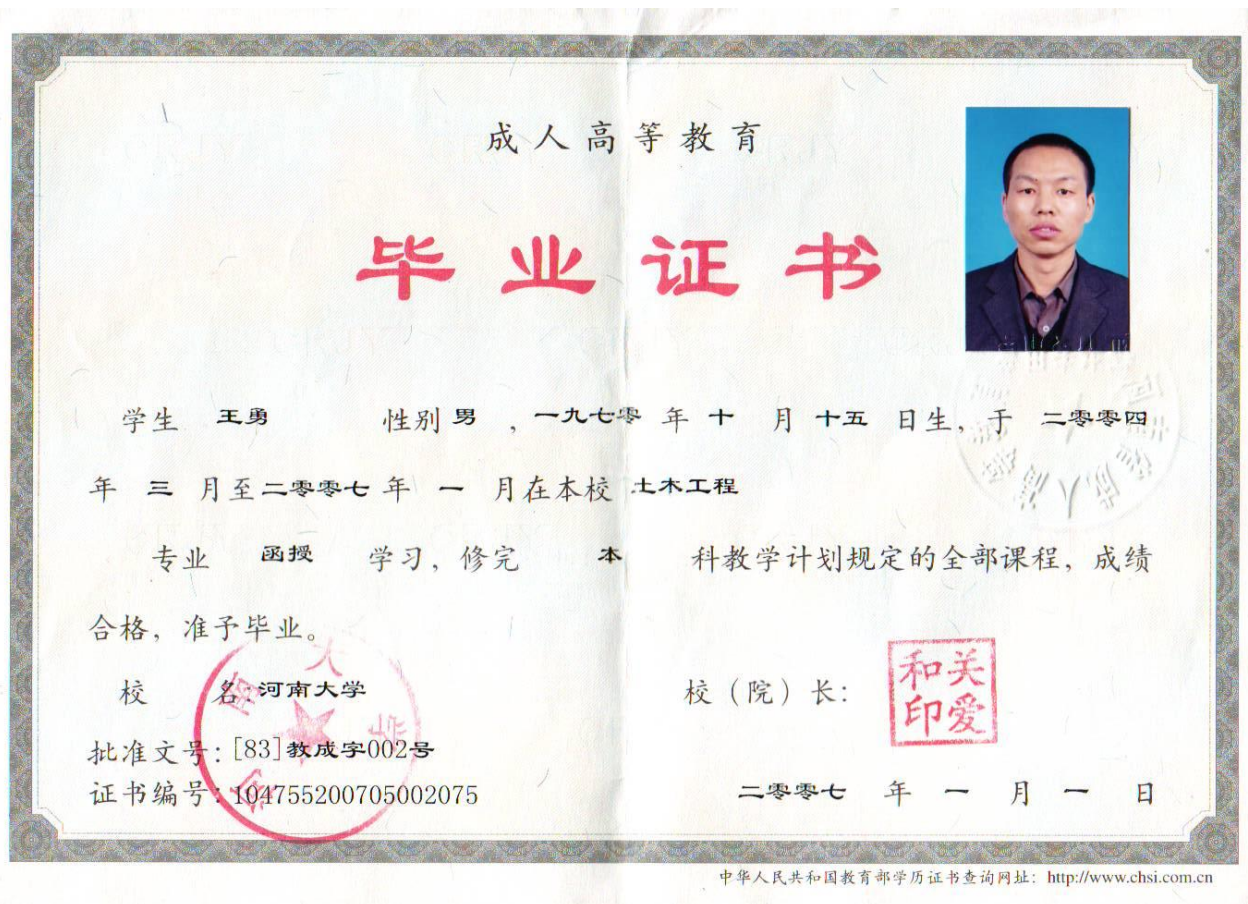 成人高等教育
毕业证书
学生 王勇 性别 男 ，一九七零 年 十 月 十五 日生，于 二零零四
年 三 月至 二零零七 年 一 月在本校 土木工程
专业 函授 学习，修完 本 科教学计划规定的全部课程，成绩
合格，准予毕业。
校 名：河南大学
校（院）长：
关爱和印
批准文号：[83]教成字002号
证书编号：104755200705002075
二零零七 年 一 月 一 日
河南大学
中华人民共和国教育部学历证书查询网址：http://www.chsi.com.cn